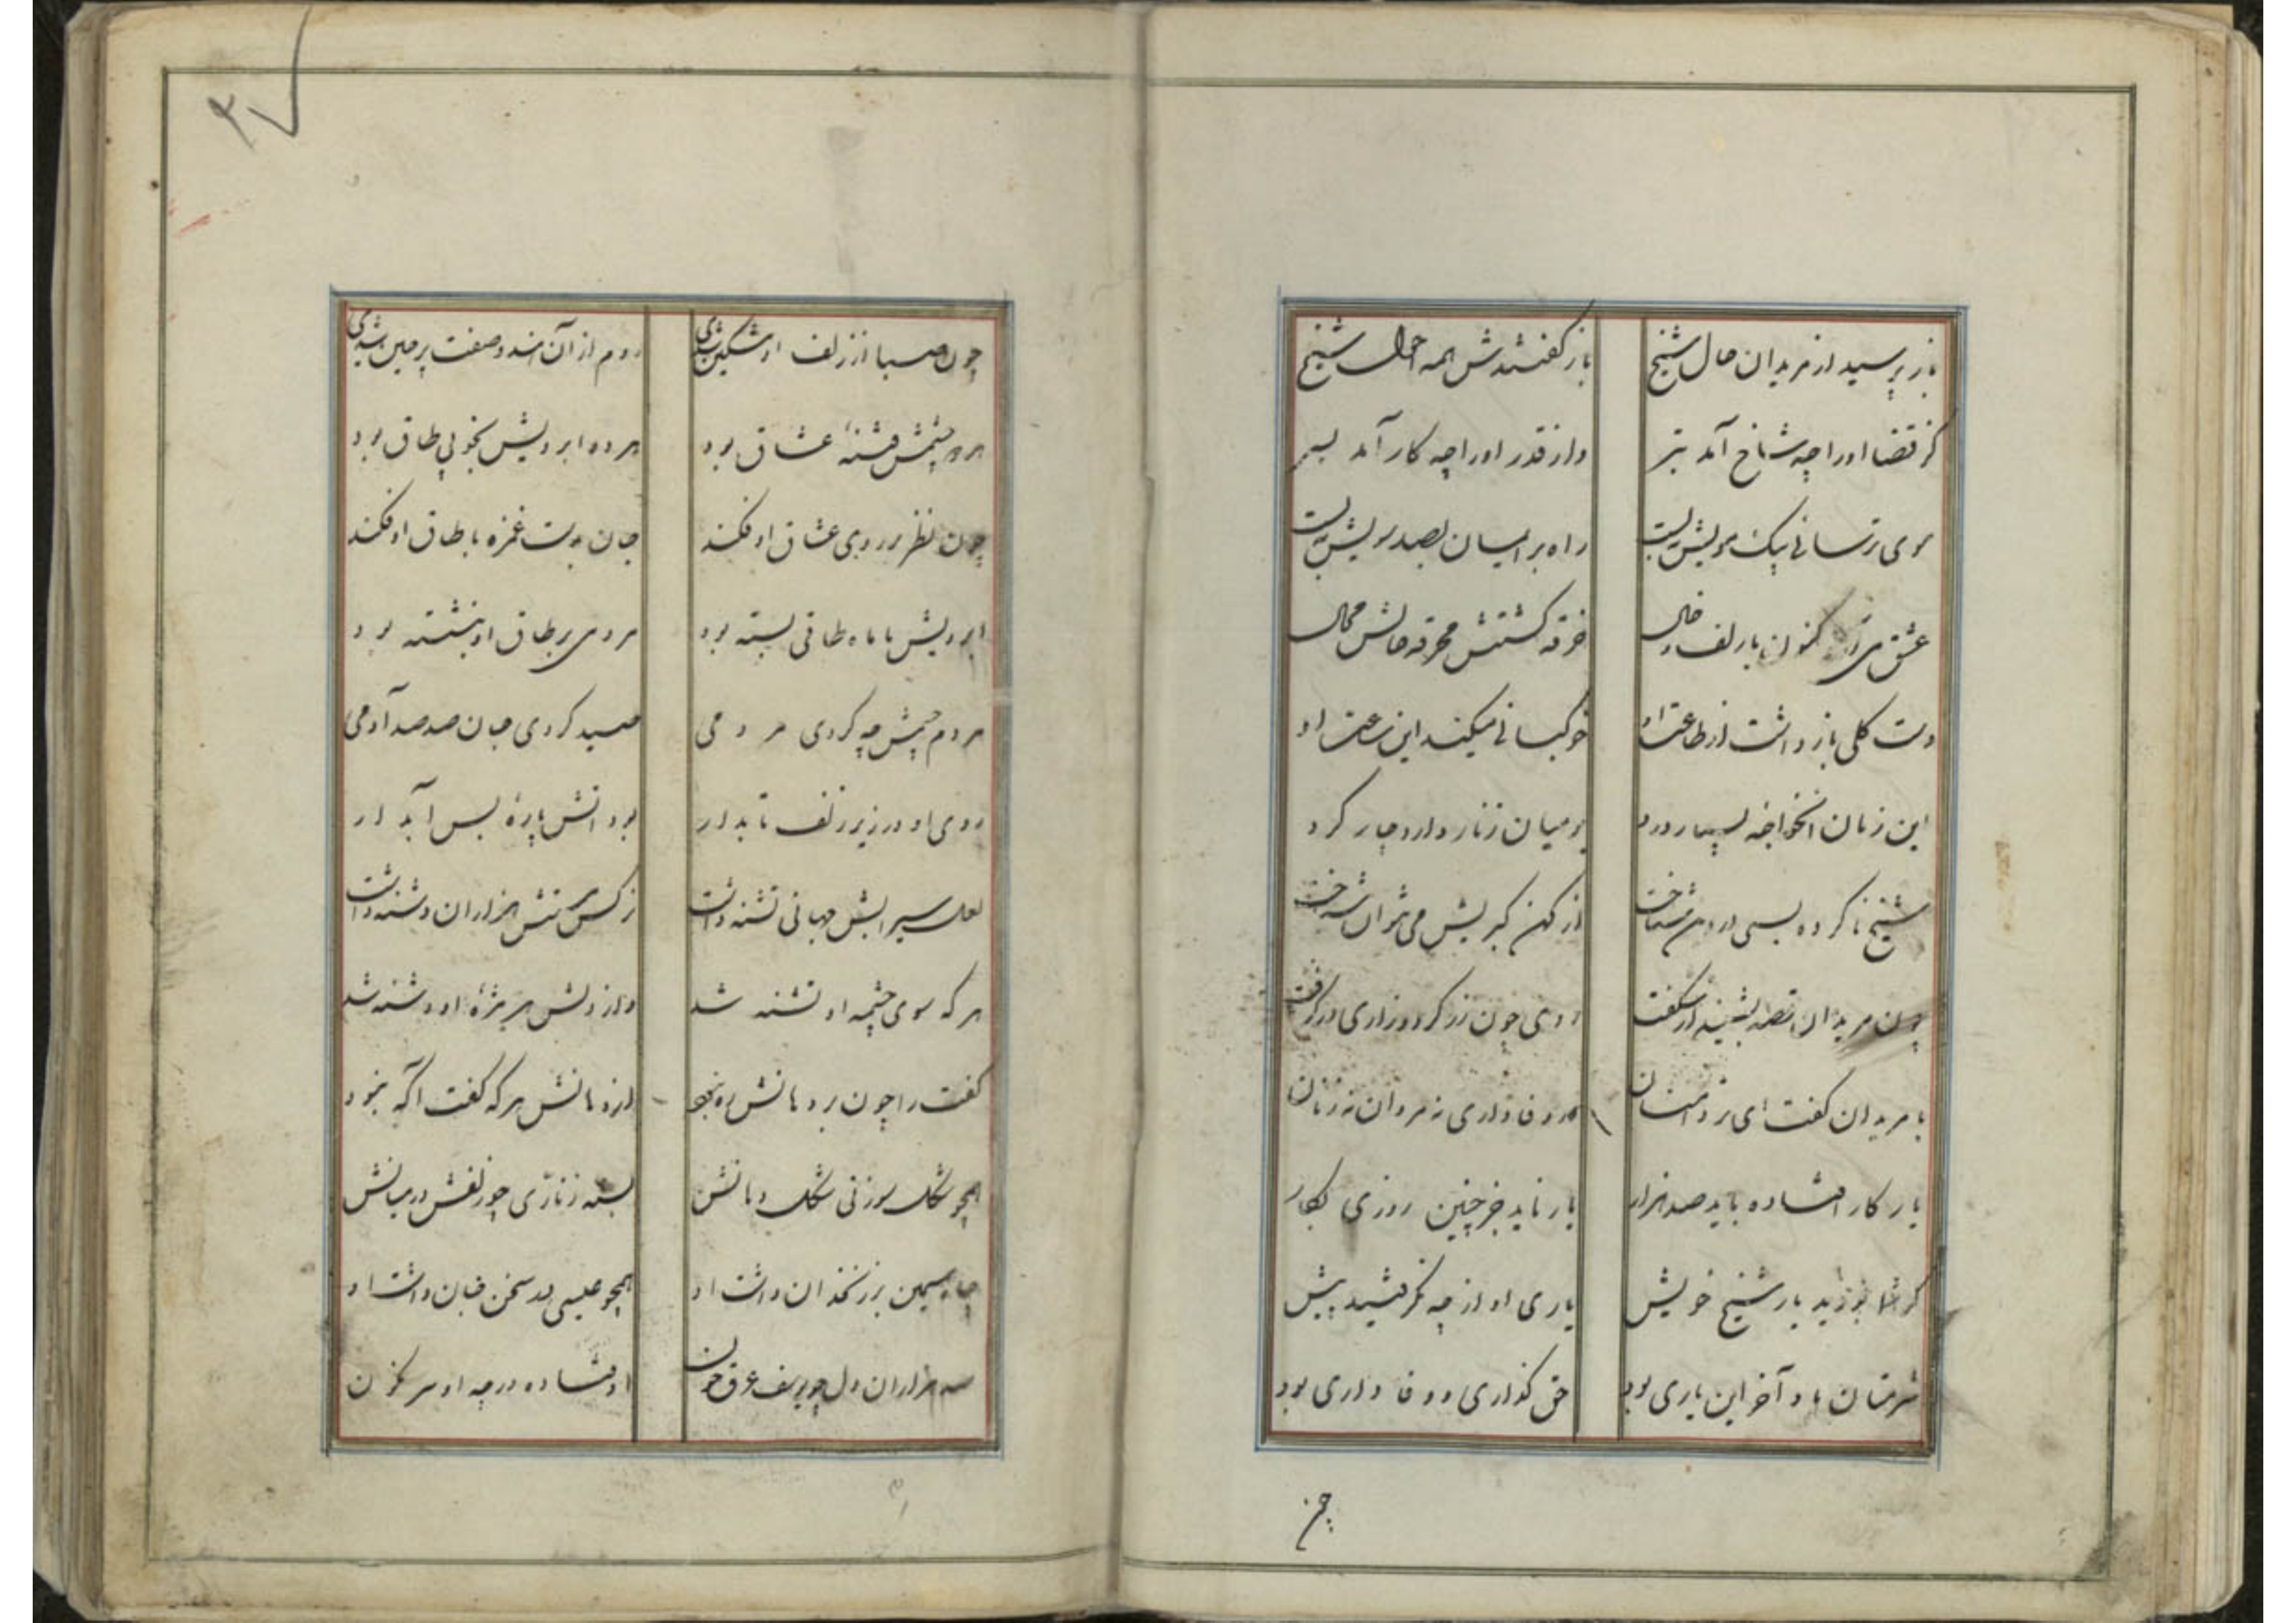 باز پرسید از مریدان حال شیخ
باز گفتندش همه احوال شیخ
کز قضا او را چه شاخ آمد ببر
واز قدر او را چه کار آمد بسر
موی ترسائی بیک مویش ببست
راه بر ایمان بصد سویش ببست
عشق می کنون با زلف و خال
خرقه گشتش مخرقه حالش محال
دست کلی باز داشت از طاعت او
خوکبانی میکند این ساعت او
این زمان آنخواجه بسیار درد
بر میان زنار دارد چار کرد
شیخ ما گرچه بسی در دین بتاخت
از کهن گبریش می نتوان شناخت
چون مرید آن قصه بشنید از شگفت
روی چون زر کرد و زاری در گرفت
با مریدان گفت ای تردامنان
در وفاداری نه مردان نه زنان
یار کار افتاده باید صد هزار
یار ناید جز چنین روزی بکار
گر شما بودید یار شیخ خویش
یاری او از چه نگرفتید پیش
شرمتان باد آخر این یاری بود
حق گذاری و وفاداری بود
چون
۳۷
چون صبا از زلف او مشکین شدی
روم از آن هندو صفت پرچین شدی
هر دو چشمش فتنهٔ عشاق بود
هر دو ابرویش بخوبی طاق بود
چون نظر بر روی عشاق او فکند
جان بدست غمزه با طاق او فکند
ابرویش با ماه طاقی بسته بود
مردمی بر طاق او بنشسته بود
مردم چشمش چه کردی مردمی
صید کردی جان صد صد آدمی
روی او در زیر زلف تابدار
بود آتش پارهٔ بس آبدار
لعل سیرابش جهانی تشنه داشت
نرگس مستش هزاران دشنه داشت
هر که سوی چشمه او تشنه شد
در دلش هر مژهٔ او دشنه شد
گفت را چون بر دهانش ره نبود
از دهانش هر که گفت آگه نبود
همچو شکل سوزنی شکل دهانش
بسته زناری چو زلفش در میانش
چاه سیمین بر زنخدان داشت او
همچو عیسی بر سخن جان داشت او
صد هزاران دل چو یوسف غرق خون
اوفتاده در چه او سرنگون